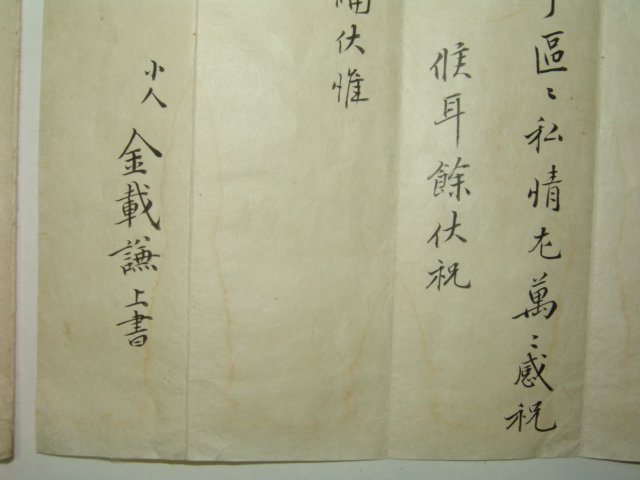 區〻私情尤萬〻感祝
候耳餘伏祝
伏惟
小人 金載謙上書